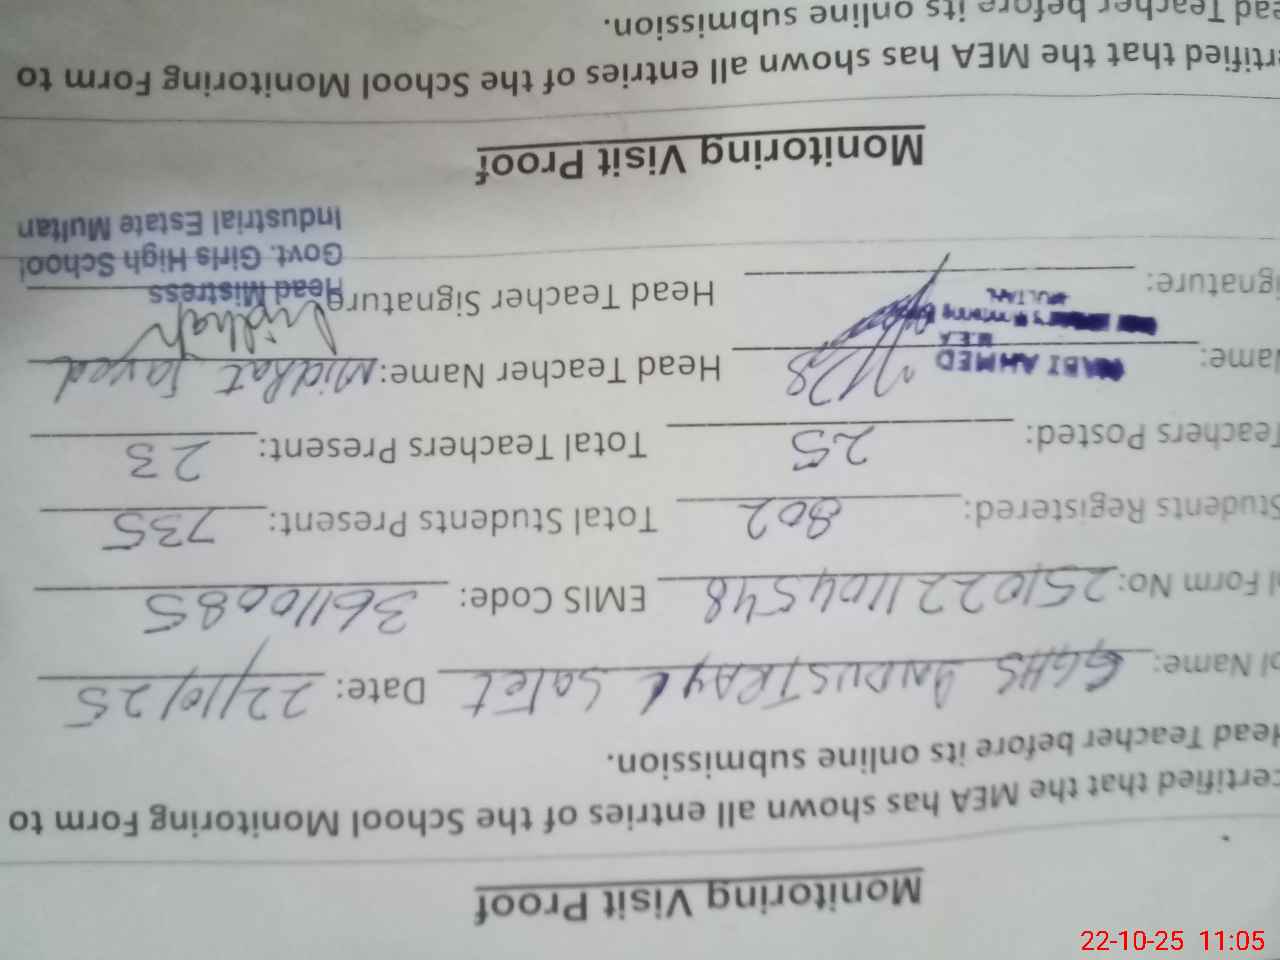 Monitoring Visit Proof
certified that the MEA has shown all entries of the School Monitoring Form to
Head Teacher before its online submission.
Name: GGHS Date: 22/10/25
Form No: 2510221104548 EMIS Code: 36110085
Students Registered: 802 Total Students Present: 735
Teachers Posted: 25 Total Teachers Present: 23
Name: AHMED M.E.A Head Teacher Name: Midhat Javed
Signature: Head Teacher Signature
Head Mistress
Govt. Girls High School
Industrial Estate Multan
Monitoring Visit Proof
certified that the MEA has shown all entries of the School Monitoring Form to
Head Teacher before its online submission.
22-10-25 11:05